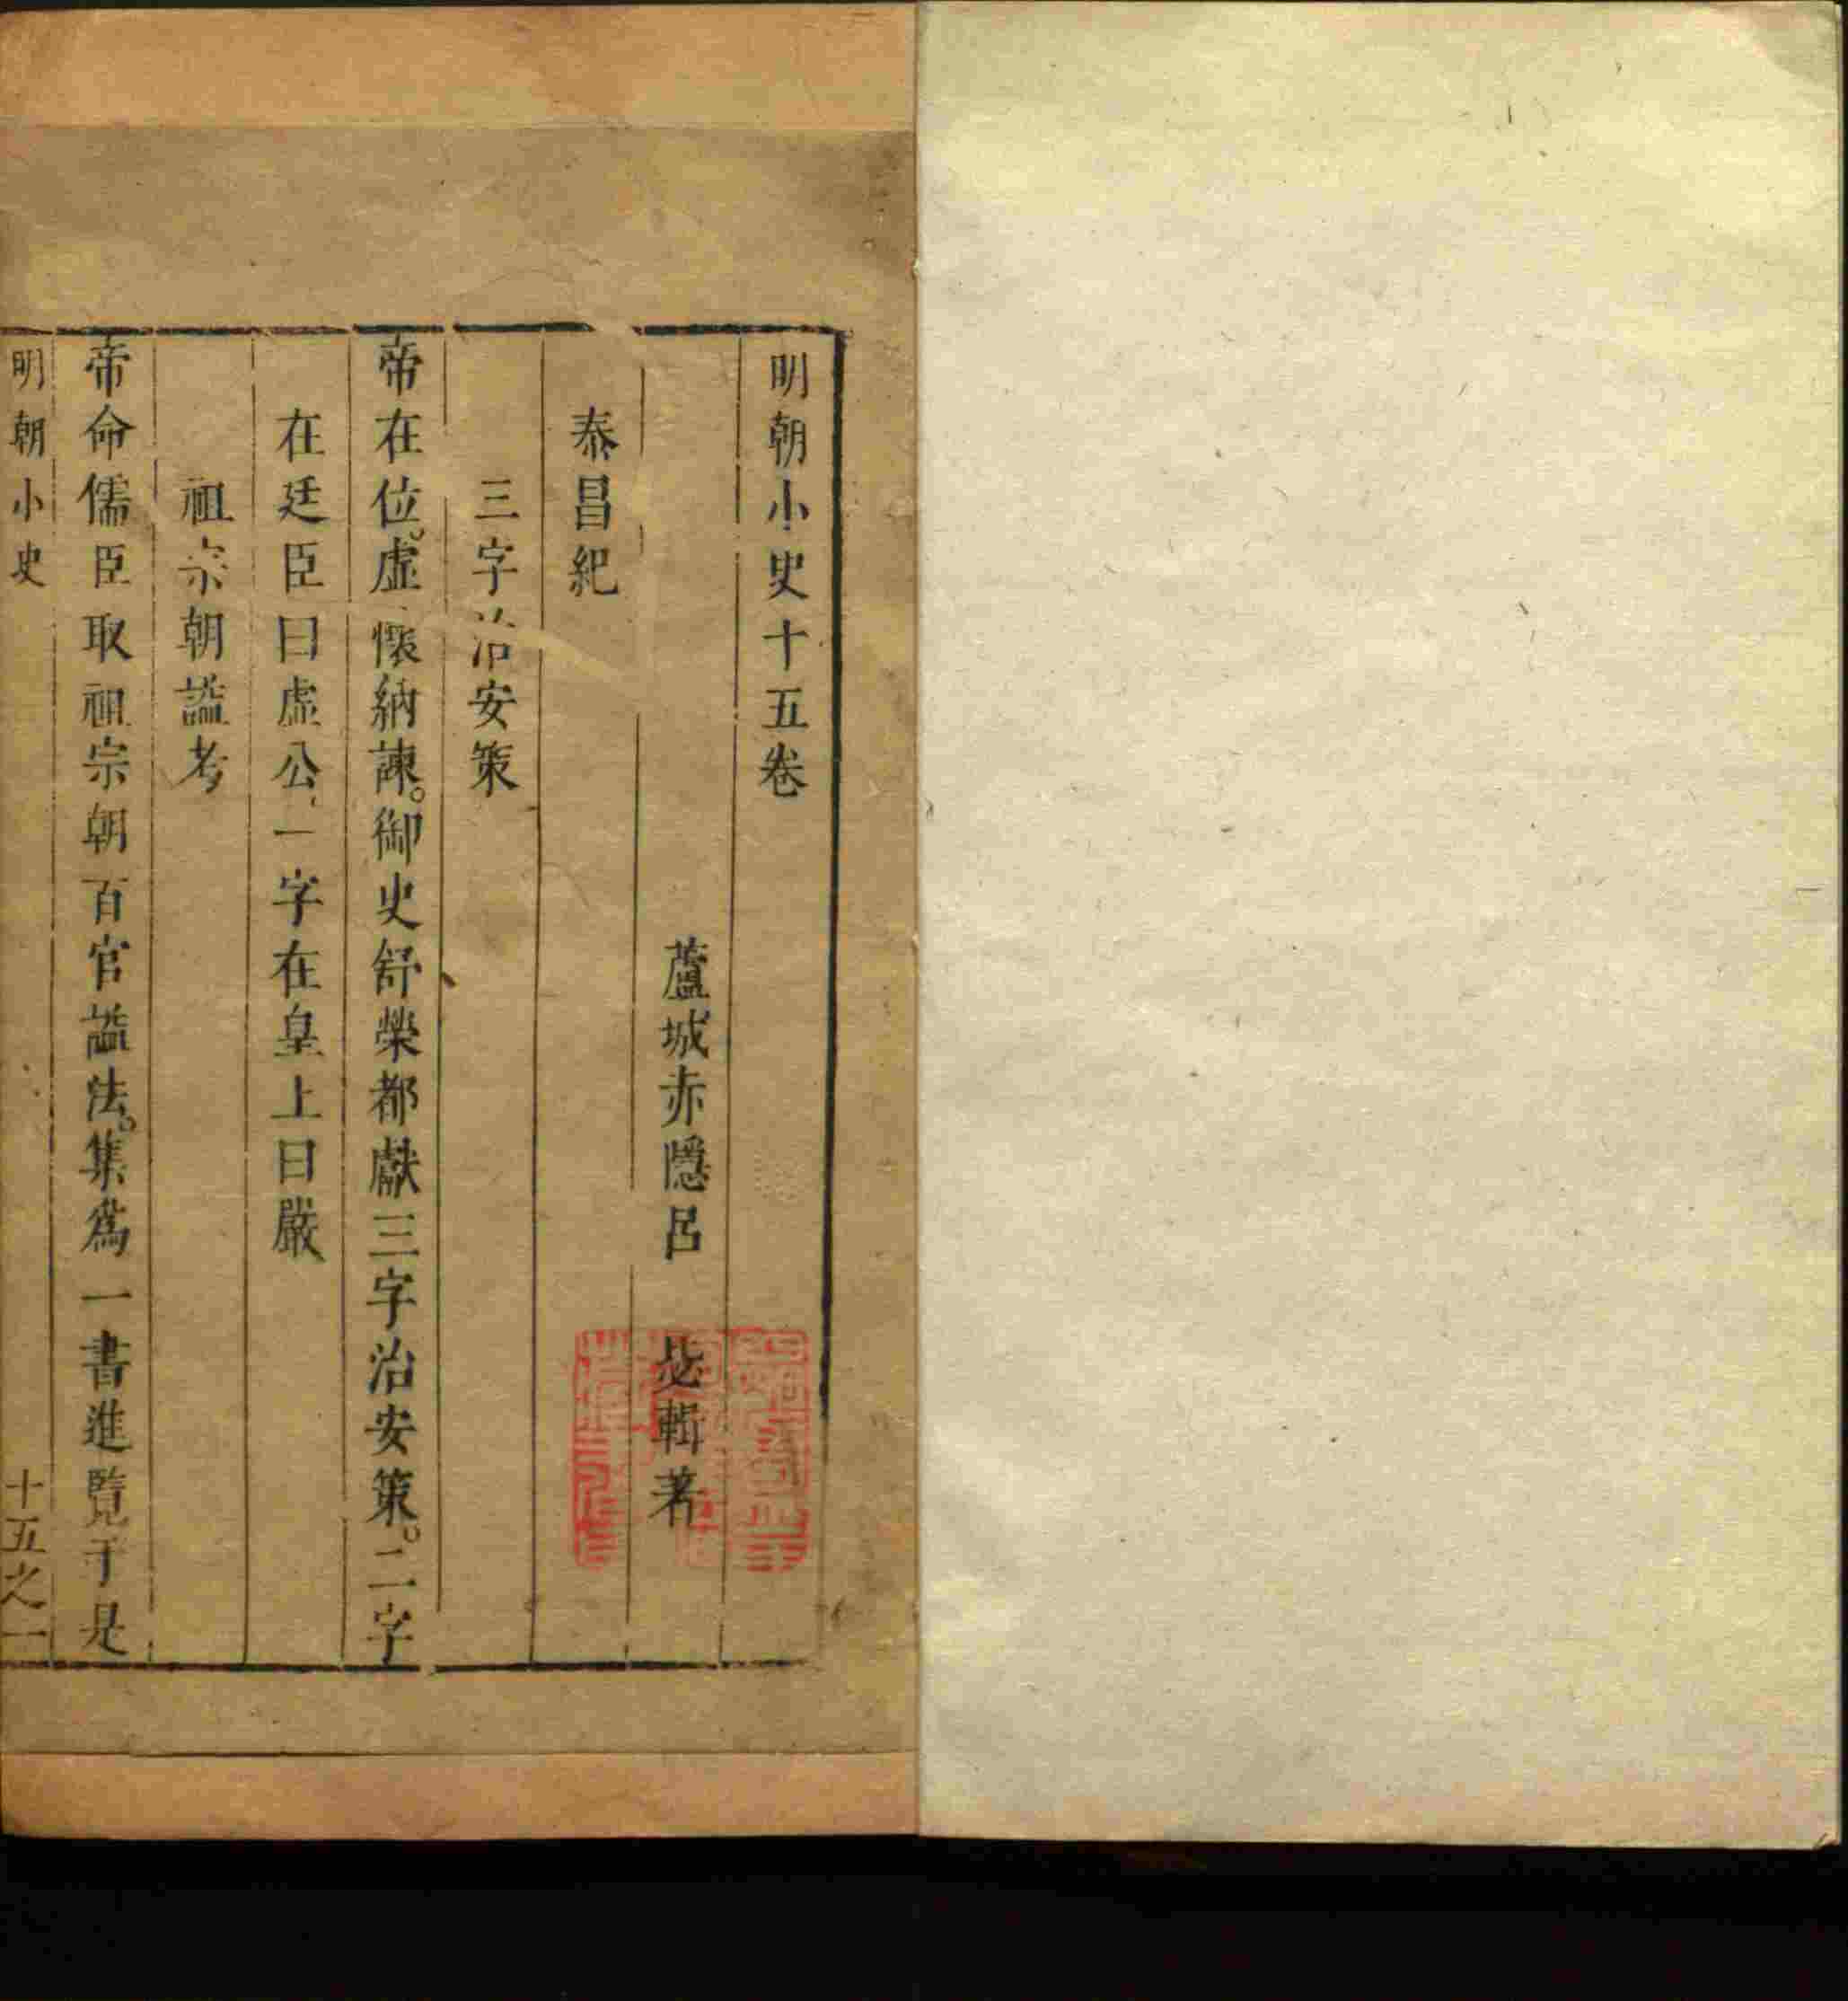 明朝小史十五卷
蘆城赤隱呂毖輯著
泰昌紀
三字治安策
帝在位。虛懷納諫。御史舒榮都獻三字治安策。二字
在廷臣曰虛公、一字在皇上曰嚴
祖宗朝諡考
帝命儒臣取祖宗朝百官諡法。集為一書進覽于是
明朝小史
十五之一